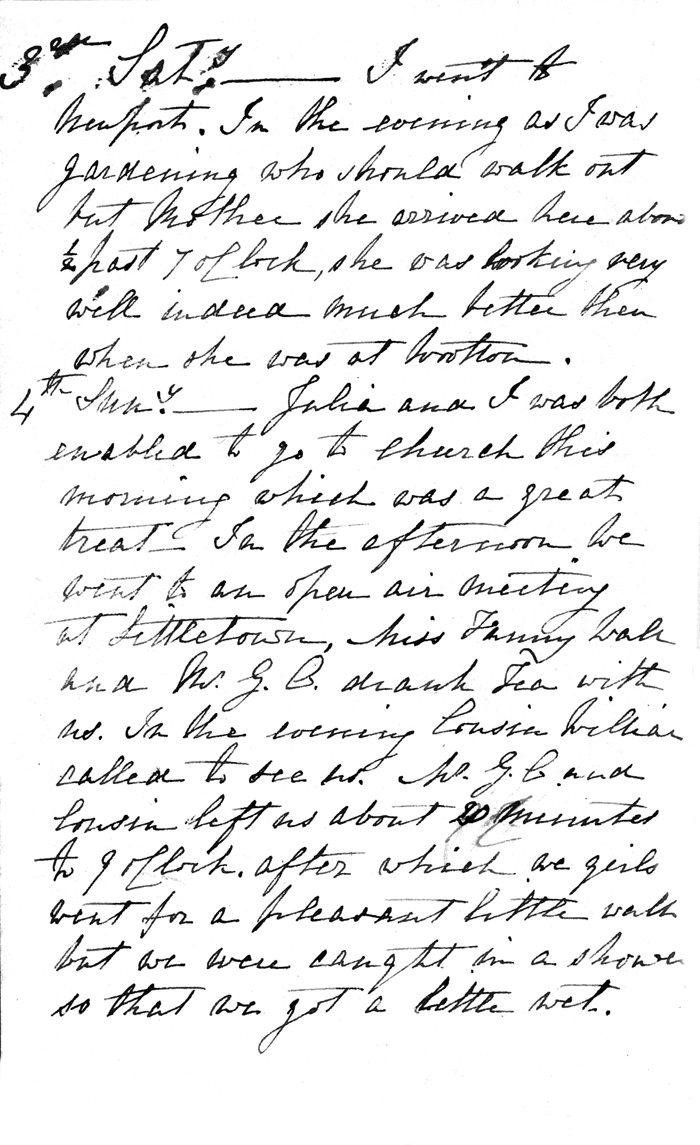 3rd. Saty. — I went to
Newport. In the evening as I was
gardening who should walk out
but Mother she arrived here abou
½ past 7 o'Clock, she was looking very
well indeed much better then
when she was at Wootton.
4th Suny. — Julia and I was both
enabled to go to Church this
morning which was a great
treat – In the afternoon we
went to an open air meeting
at Littletown, Miss Fanny Wale
and Mr. G. C. drank Tea with
us. In the evening Cousin Willia
called to see us. Mr. G. C. and
Cousin left us about 20 minutes
to 9 o'Clock. after which we girls
went for a pleasant little walk
but we were caught in a showe
so that we got a little wet.